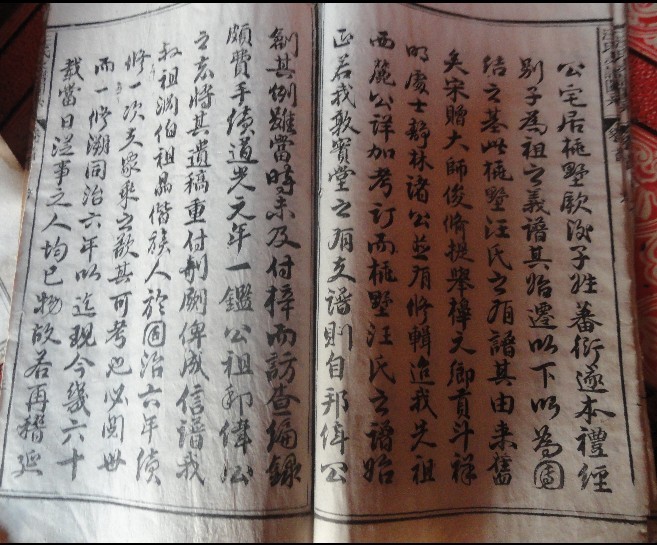 公宅居椸墅厥後子姓蕃衍遂本禮經
別子為祖之義譜其始遷以下以為團
結之基此椸墅汪氏之有譜其由來舊
矣宋贈大師俊脩提舉樟天卿貢斗祥
明處士靜林諸公並有修輯逮我先祖
西麓公詳加考訂而椸墅汪氏之譜始
正若我敦實堂之有支譜則自邦偉公
創其例雖當時未及付梓而訪查編錄
頗費手續道光元年一鑑公祖邦偉公
之志將其遺稿重付剞劂俾成信譜我
叔祖淵伯祖晶偕族人於同治六年續
修一次支派系之歌其可考也必閱世
而一修溯同治六年以迄現今幾六十
載當日從事之人均已物故若再稽延